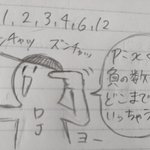 1, 2, 3, 4, 6, 12
ンチャッ ズンチャッ
負の数
どこまで
いっちゃう
DJ
ヨー